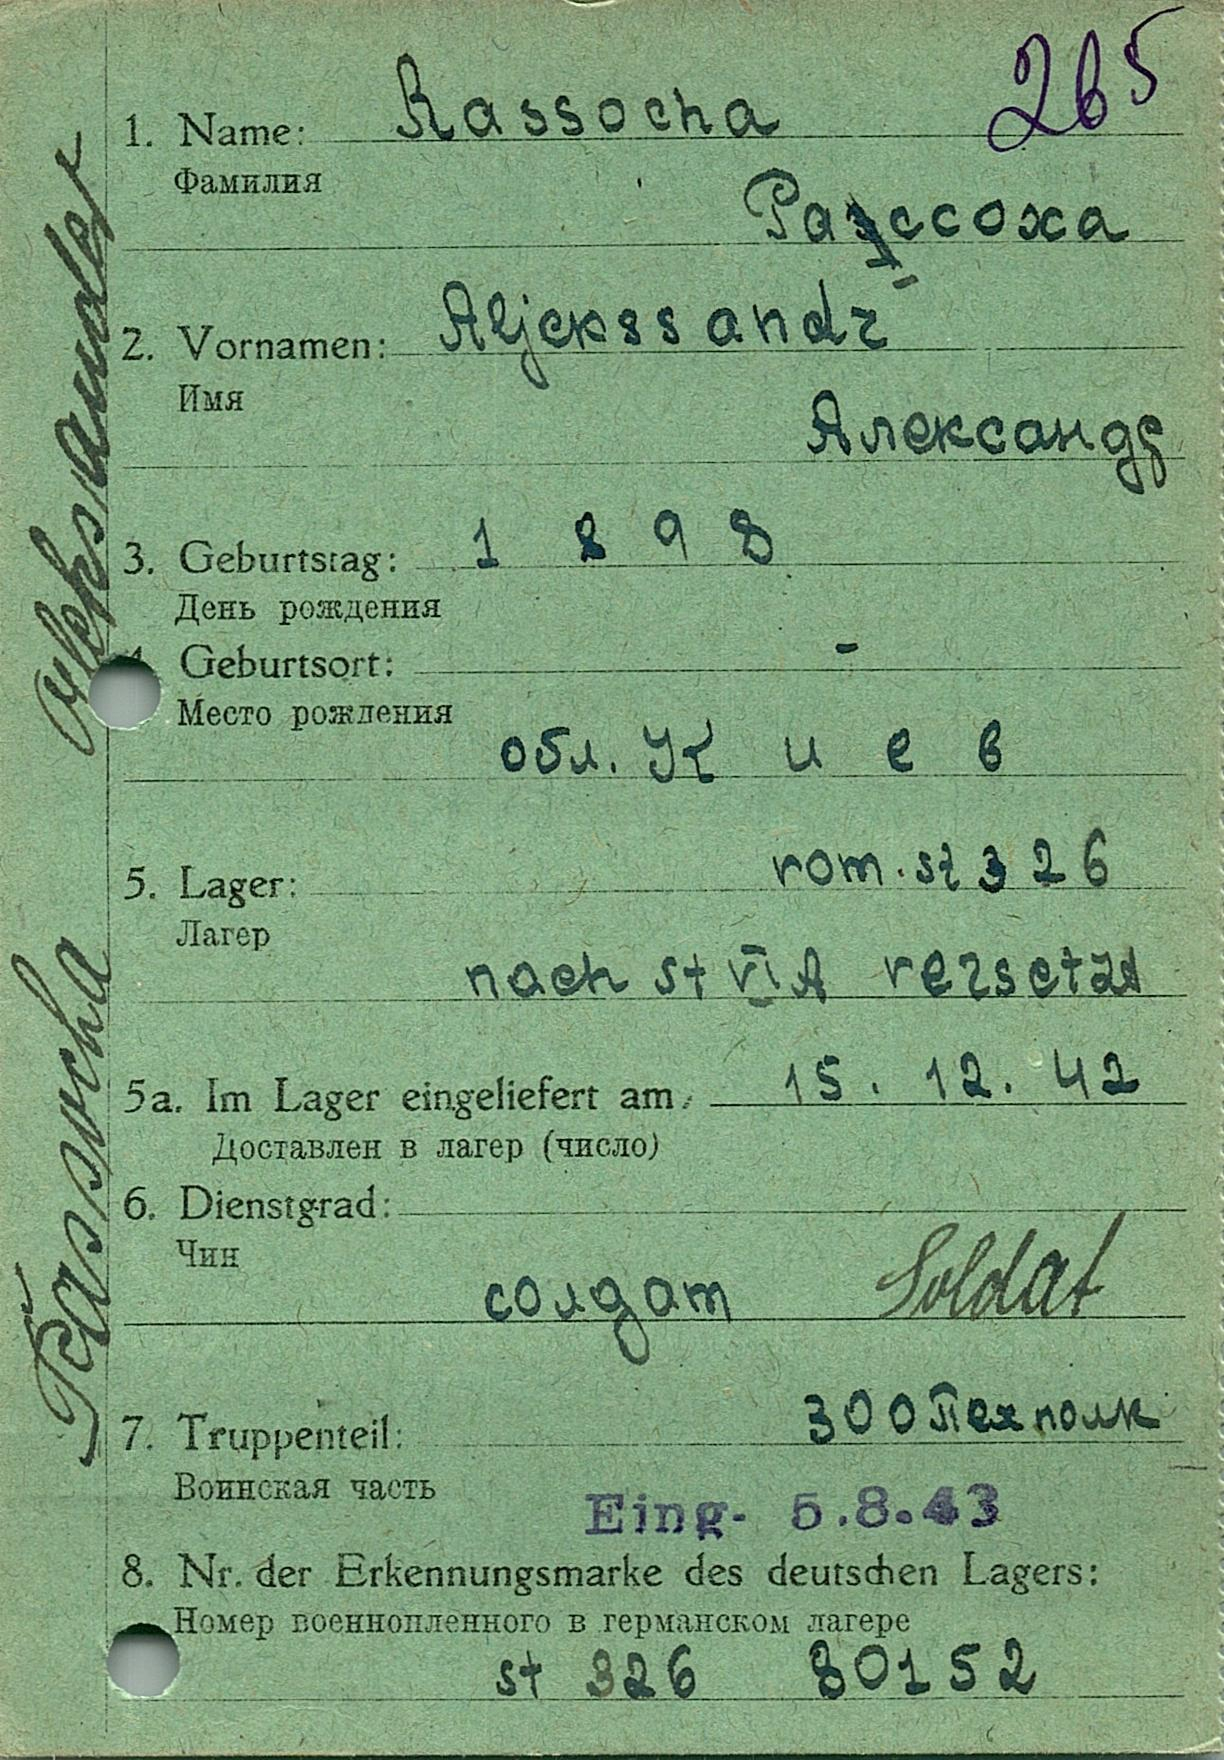 265
1. Name: Rassocha
Фамилия
Рассоха
2. Vornamen: Aljekssandr
Имя
Александр
3. Geburtstag: 1898
День рождения
4. Geburtsort: -
Место рождения
обл. Киев
5. Lager: vom. st 326
Лагер
nach st VI A versetzt
5a. Im Lager eingeliefert am, 15. 12. 42
Доставлен в лагер (число)
6. Dienstgrad:
Чин
солдат Soldat
7. Truppenteil: 300 Пех полк
Воинская часть
Eing- 5.8.43
8. Nr. der Erkennungsmarke des deutschen Lagers:
Номер военнопленного в германском лагере
st 326 80152
Rassocha Aleksander